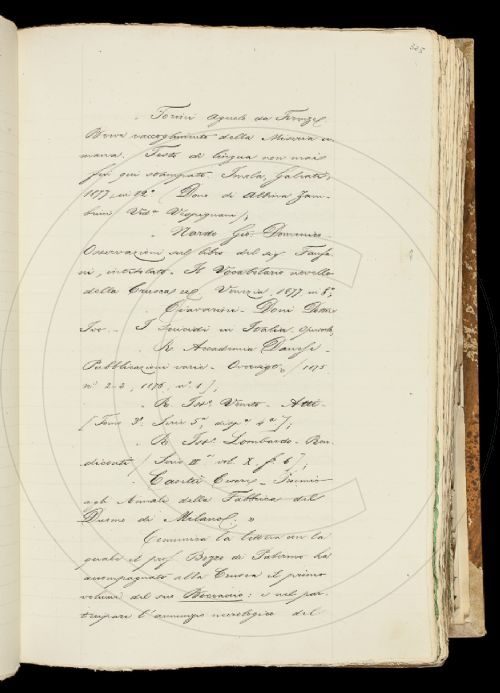 325
Torini Agnolo da Firenze
Breve raccoglimento della Miseria u
mana. Testo di lingua non mai
fin qui stampato. Imola, Galeati,
1877, in 12.° (Dono di Albina Zam-
brini Ved.ᵃ
„ Nardo Gio. Domenico -
Osservazioni sul libro del sig. Fanfa
ni, intitolato - Il Vocabolario novello
della Crusca ec. Venezia, 1877 in 8.°;
Chiavarini - Doni
I Suicidi in Italia.
„ R. Accademia Danese -
Pubblicazioni varie - Oversigt, (1875
n.° 2-3, 1876, n.° 1);
„ R. Ist.° Veneto - Atti
(Tomo 3.° Serie 5.ᵃ, disp.ᵃ 4.ᵃ);
„ R. Ist.° Lombardo - Ren
diconti (Serie II.ᵃ vol. X f. 6);
Cantù Cesare -
agli Annali della Fabbrica del
Duomo di Milano). »
Comunica la lettera con la
quale il prof. Bozzo di Palermo ha
accompagnato alla Crusca il primo
volume del suo Boccaccio: e nel par-
tecipare l'annunzio necrologico del